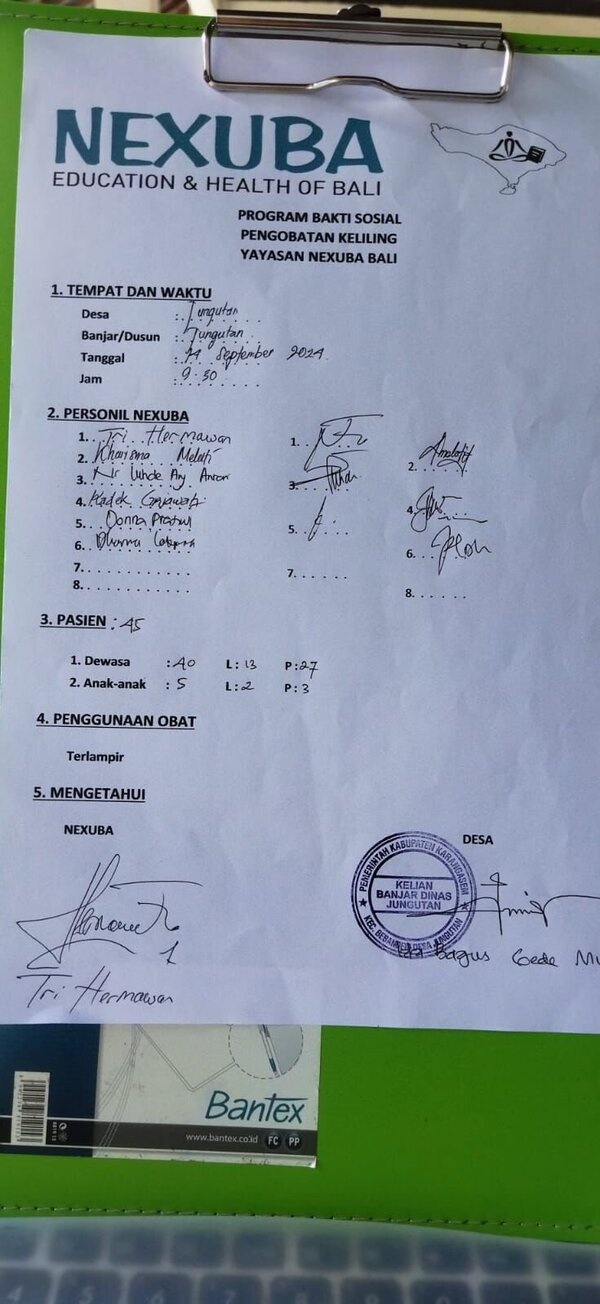 NEXUBA
EDUCATION & HEALTH OF BALI
PROGRAM BAKTI SOSIAL
PENGOBATAN KELILING
YAYASAN NEXUBA BALI
1. TEMPAT DAN WAKTU
Desa : Jungutan
Banjar/Dusun : Jungutan
Tanggal : 14 September 2024
Jam : 9.30
2. PERSONIL NEXUBA
1. Tri Hermawan 1.
2. Kharisma Melati 2.
3. Ni Luhde Ary 3.
4. Kadek 4.
5. Donna Pratiwi 5.
6. Dharma 6.
7. 7.
8. 8.
3. PASIEN : 45
1. Dewasa : 40 L : 13 P : 27
2. Anak-anak : 5 L : 2 P : 3
4. PENGGUNAAN OBAT
Terlampir
5. MENGETAHUI
NEXUBA DESA
PEMERINTAH KABUPATEN KARANGASEM
KELIAN
BANJAR DINAS
JUNGUTAN
KEC. BEBANDEM DESA JUNGUTAN
Ida Bagus Gede
Tri Hermawan
Bantex
www.bantex.co.id FC PP
4 5 6 7 8 9 0